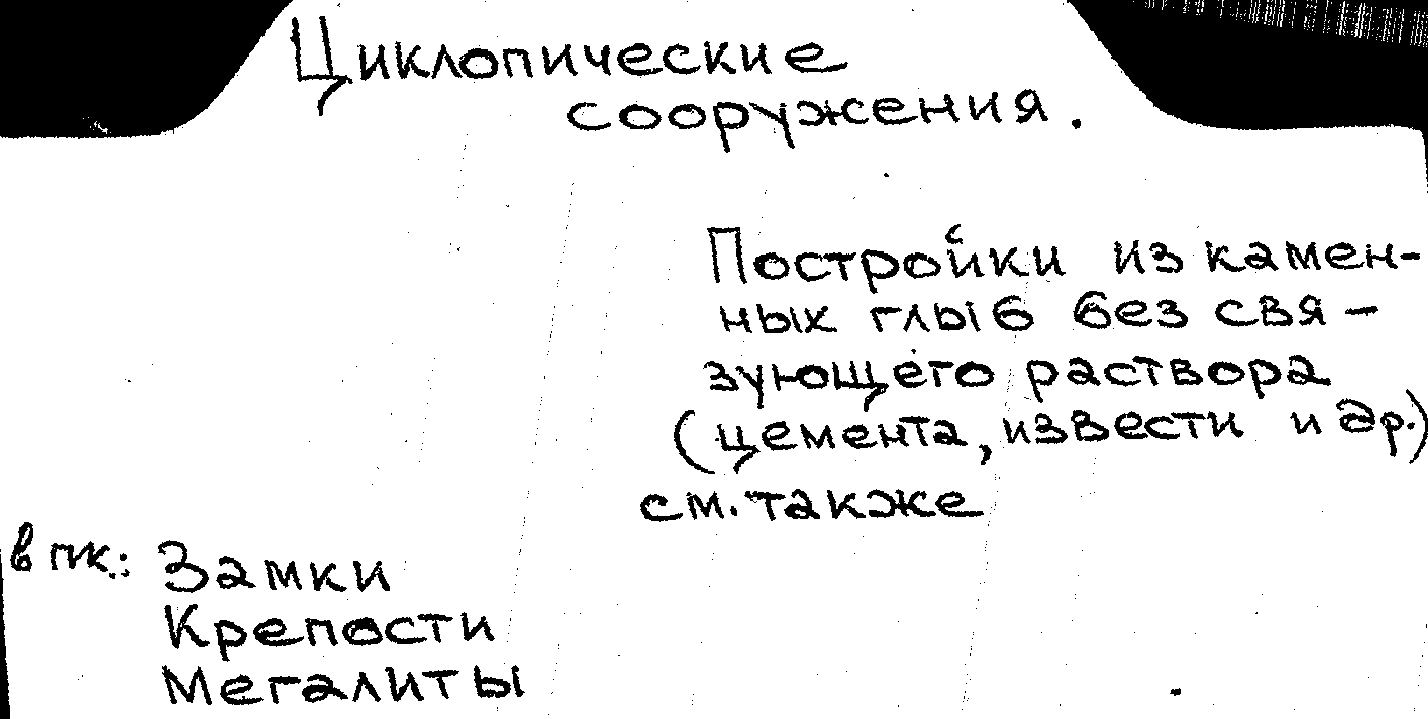 Циклопические
сооружения.
Постройки из камен-
ных глыб без свя-
зующего раствора
(цемента, извести и др.)
см. также
в пк.: Замки
Крепости
Мегалиты